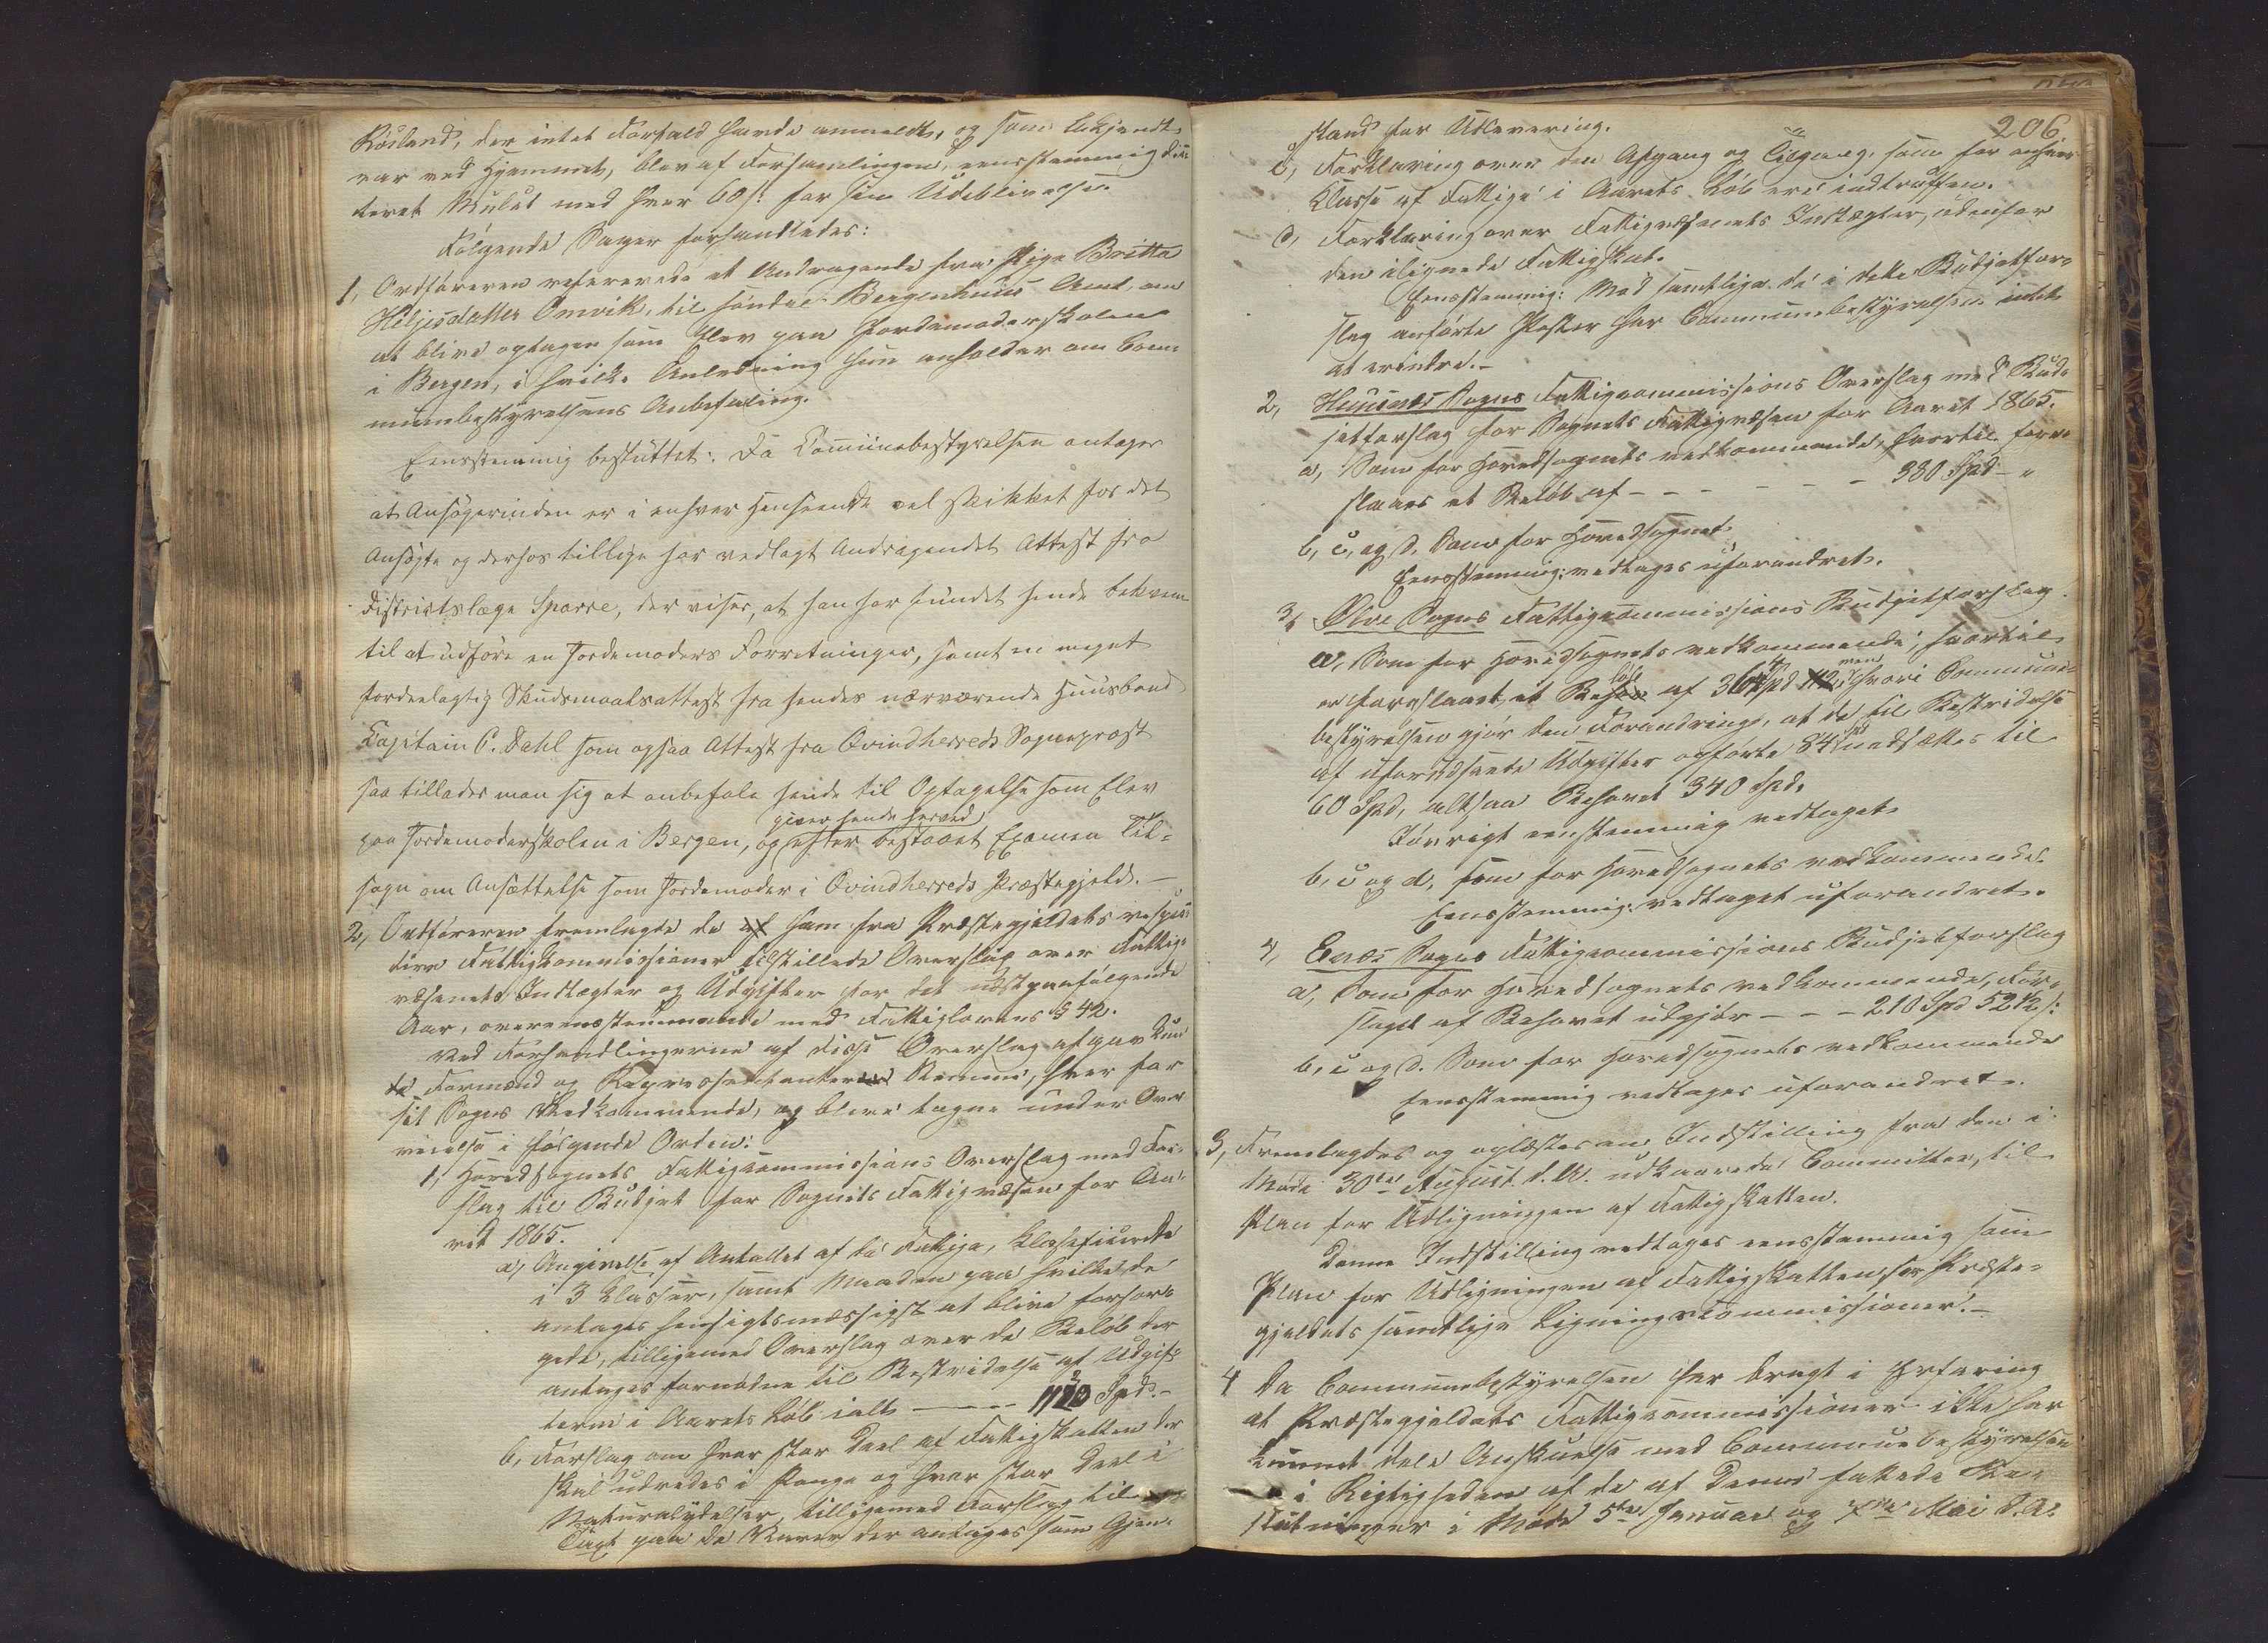 Røsland, der intet Forfald havde anmeldt, og som bekjendt
var ved Hjemmet, blev af Forsamlingen eensstemmig dic-
teret Mulct med hver 60 s: for sin Udeblivelse.
Følgende Sager forhandledes:
1, Ordføreren refererede et Andragende fra Pige Britta
Heljesdatter Omvik, til søndre Bergenhuus Amt om
at blive optagen som Elev paa Jordemoderskolen
i Bergen, i hvilken Anledning hun anholder om Com-
munebestyrelsens Anbefaling.
Eensstemmig besluttet: Da Communebestyrelsen antager
at Ansøgerinden er i enhver Henseende vel skikket for det
Ansøgte og derhos tillige har vedlagt Andragendet Attest fra
Districtslæge Sparre, der viser, at han har fundet hende bekvem
til at udføre en Jordemoders Forretninger, samt en meget
fordeelagtig Skudsmaalsattest fra hendes nærværende Huusbond
Capitain C. Dahl som ogsaa Attest fra Qvindherreds Sogneprest
saa tillader man sig at anbefale hende til Optagelse som Elev
giver hende herved
paa Jordemoderskolen i Bergen, og efter bestaaet Examen Til-
sagn om Ansættelse som Jordemoder i Qvindherreds Præstegjeld. —
2, Ordføreren fremlagde de af ham fra Præstegjeldets respec-
tive Fattigkommissioner tilstillede Overslag over Fattig-
væsenets Indtægter og Udgifter for det næstpaafølgende
Aar, overeensstemmende med Fattiglovens § 42.
Ved Forhandlingerne af disse Overslag afgav kun
de Formænd og Repræsentanter Stemme, hver for
sit Sogns Vedkommende, og bleve tagne under Over
veielse i følgende Orden:
1, Hovedsognets Fattigcommissions Overslag med For-
slag til Budget for Sognets Fattigvæsen for Aa-
ret 1865.
a, Angivelse af Antallet af de Fattige, klassificerede
i 3 Klasser, samt Maaden paa hvilke de
antages hensigtsmæssigst at blive forsør-
gede, tilligemed Overslag over de Beløb der
antages fornødne til Bestridelse af Udgif-
terne i Aarets Løb ialt — — — 1120 Spd. -
b, Forslag om hvor stor Deel af Fattigskatten der
skal udredes i Penge og hvor stor Deel i
Naturalydelser, tilligemed Forslag til
Taxt paa de Varer der antages som Gjen-
206.
stand for Udlevering.
c, Forklaring over den Afgang og Tilgang, som for enhver
Klasse af Fattige i Aarets Løb ere indtruffen.
d, Forklaring over Fattigvæsenets Indtægter, udenfor
den ilignede Fattigskat.
Eensstemmig: Mod samtlige de i dette Budjetfor-
slag anførte Poster har Communebestyrelsen intet
at erindre. -
2, Huusnæs Sogns Fattigcommissions Overslag med Bud-
jetforslag for Sognets Fattigvæsen for Aaret 1865.
a, Som for Hovedsognets vedkommende, hvortil fore-
slaaes et Beløb af - - - - - - 380 Spd - "
b, c, og d. Som for Hovedsognet
Eensstemmig: vedtages uforandret.
3, Ølve Sogns Fattigcommissions Budjetforslag
a, Som for Hovedsognets vedkommende, hvortil
er foreslaaet et Behov af 364 Spd men hvori Commune-
bestyrelsen gjør den Forandring, at de til Bestridelse
af uforudseete Udgifter opførte 84 Spd nedsættes til
60 Spd, altsaa Behovet 340 Spd.
Iøvrigt eenstemmig vedtaget
b, c og d, som for Hovedsognets vedkommende.
Eensstemmig: vedtaget uforandret.
4, Enæs Sogns Fattigcommissions Budjetforslag
a, Som for Hovedsognets vedkommende, For-
slaget af Behovet udgjør - - - 210 Spd 52 ½ s:
b, c og d. Som for Hovedsognets vedkommende
Eensstemmig vedtages uforandret.
3, Fremlagdes og oplæstes en Indstilling fra den i
Møde 30te August d. A. udkaarede Committee, til
Plan for Udligningen af Fattigskatten.
Denne Indstilling vedtages eensstemmig som
Plan for Udligningen af Fattigskatten for Præste-
gjeldets samtlige Ligningscommissioner. -
4 Da Communebestyrelsen har bragt i Erfaring
at Præstegjeldets Fattigcommissioner ikke har
kunnet dele Anskuelse med Communebestyrelsen
i Rigtigheden af de af Denne fattede Be-
slutninger i Møde 5te Januar og 7de Mai d. A.